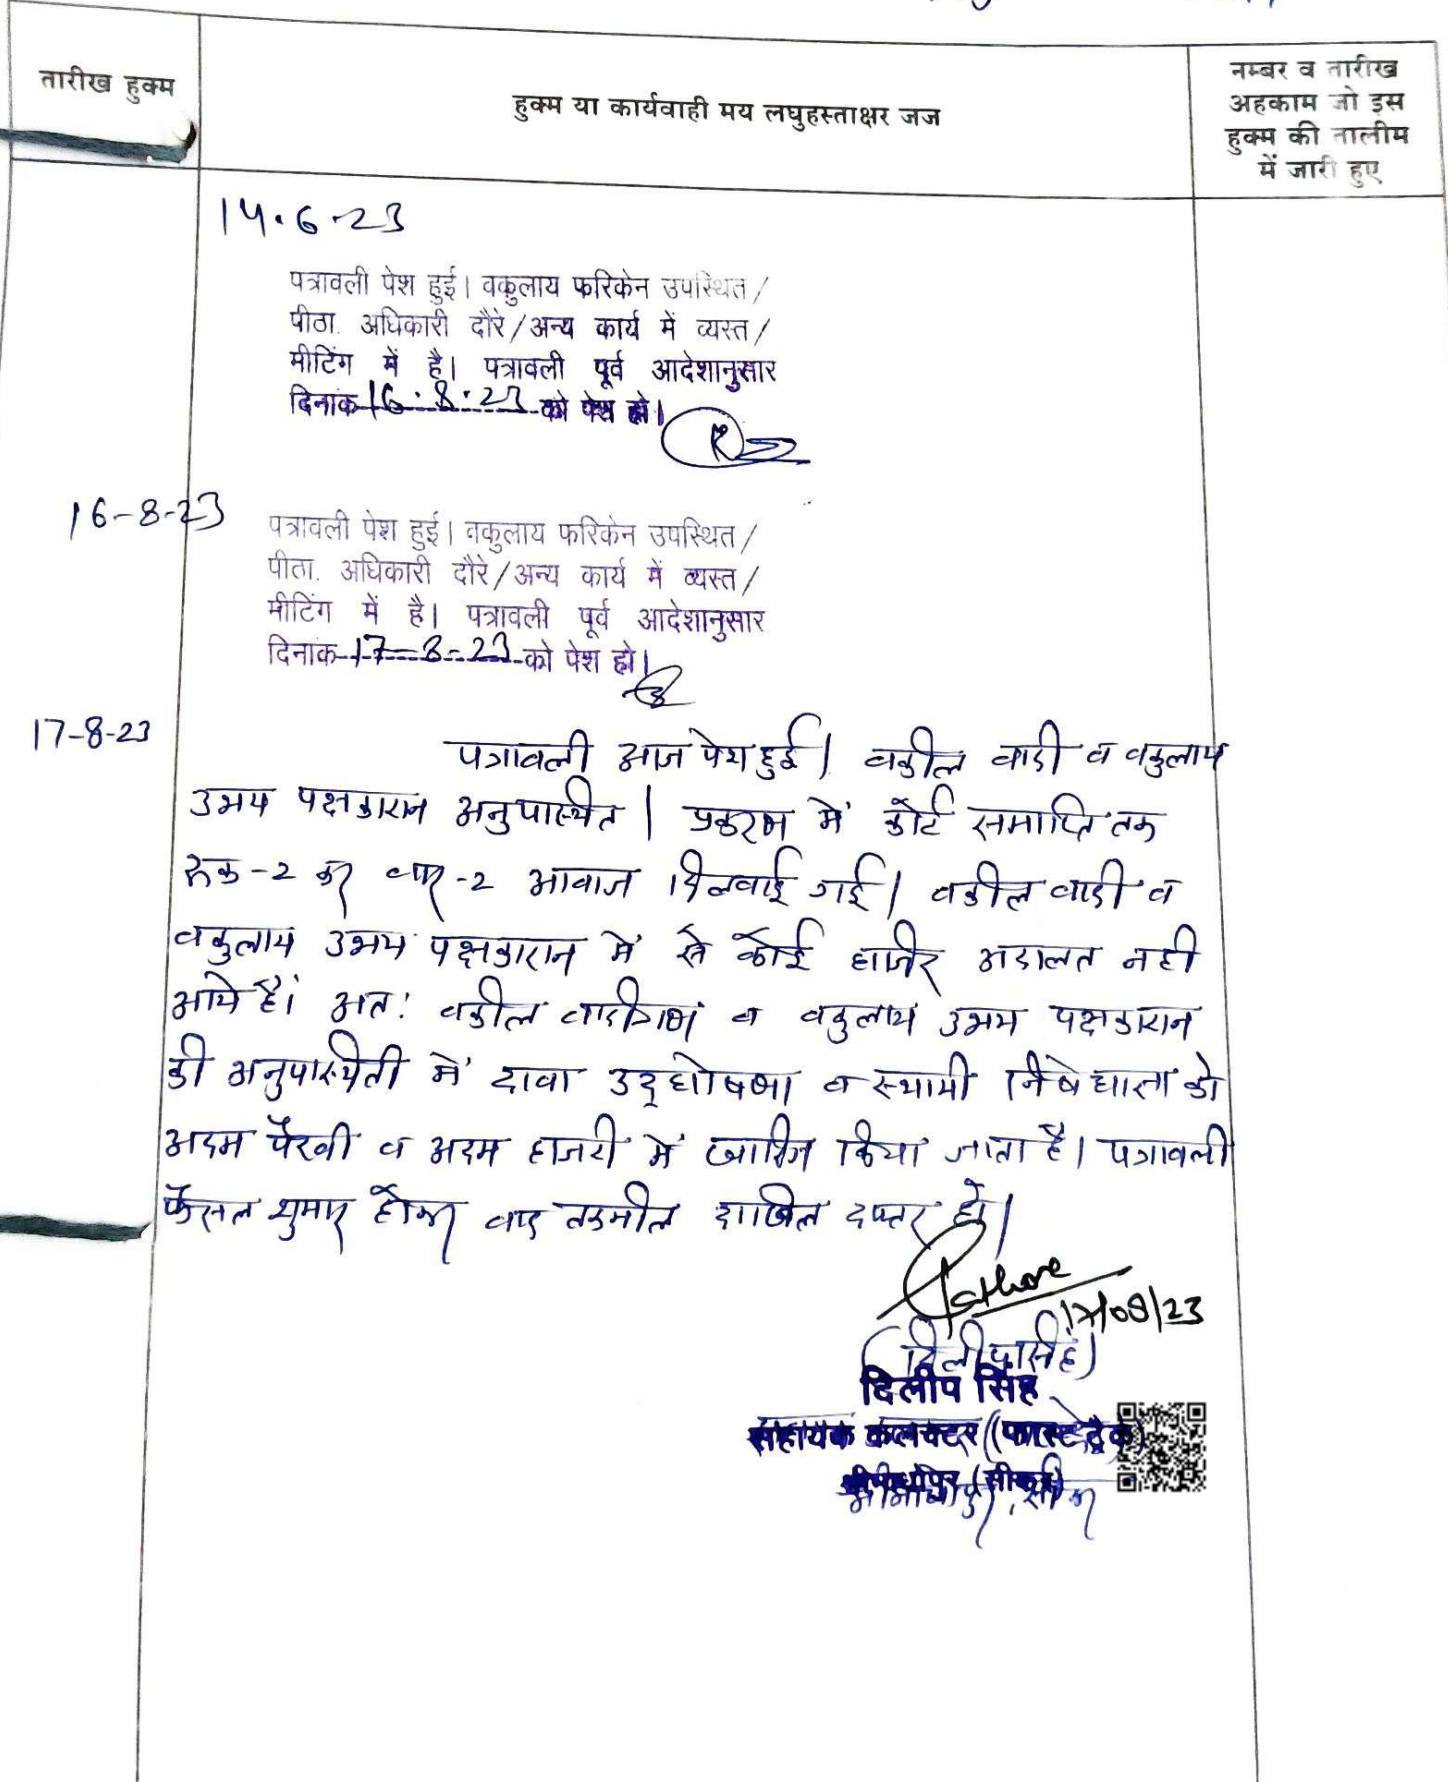 तारीख हुक्म
हुक्म या कार्यवाही मय लघुहस्ताक्षर जज
नम्बर व तारीख
अहकाम जो इस
हुक्म की तालीम
में जारी हुए
14.6.23
पत्रावली पेश हुई। वकुलाय फरिकेन उपस्थित/
पीठा. अधिकारी दौरे/अन्य कार्य में व्यस्त/
मीटिंग में है। पत्रावली पूर्व आदेशानुसार
दिनांक 16.8.23 को पेश हो।
16-8-23
पत्रावली पेश हुई। वकुलाय फरिकेन उपस्थित/
पीठा. अधिकारी दौरे/अन्य कार्य में व्यस्त/
मीटिंग में है। पत्रावली पूर्व आदेशानुसार
दिनांक 17-8-23 को पेश हो।
17-8-23
पत्रावली आज पेश हुई। वकील वादी व वकुलाय
उभय पक्षकारान अनुपास्थित। प्रकरण में कोर्ट समाप्ति तक
रुक-2 कर बार-2 आवाज दिलवाई गई। वकील वादी व
वकुलाय उभय पक्षकारान में से कोई हाजिर अदालत नही
आये है। अतः वकील वादीगण व वकुलाय उभय पक्षकारान
की अनुपास्थिती में दावा उद्घोषणा व स्थायी निषेधाज्ञा को
अदम पैरवी व अदम हाजरी में खारिज किया जाता है। पत्रावली
फैसल शुमार होकर बाद तकमील दाखिल दफ्तर हो।
Rathore
17/08/23
(दिलीप सिंह)
दिलीप सिंह
सहायक कलक्टर (फास्ट ट्रैक)
श्रीमाधोपुर (सीकर)
श्रीमाधोपुर, सीकर